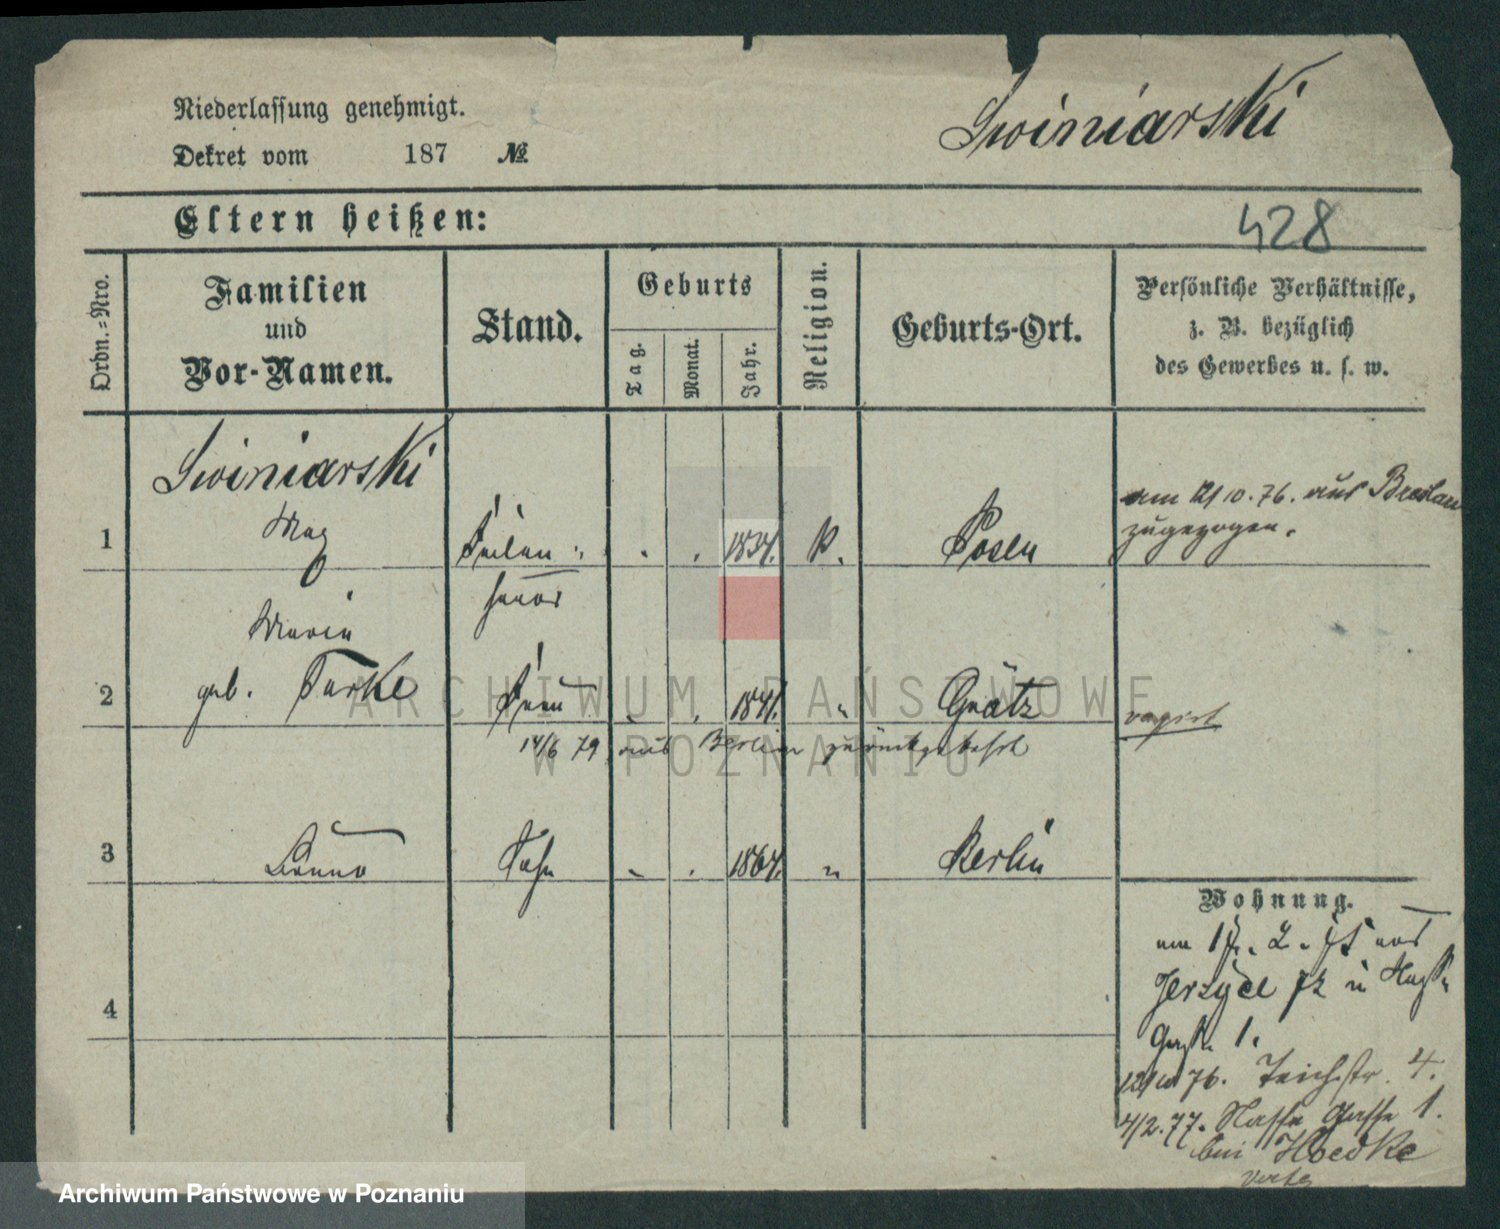 Niederlassung genehmigt.
Dekret vom 187 №
Swiniarski
Eltern heißen:
428
Ordn.-Nro.
Familien
und
Vor-Namen.
Stand.
Geburts
Tag.
Monat.
Jahr.
Religion.
Geburts-Ort.
Persönliche Verhältnisse,
z. B. bezüglich
des Gewerbes u. s. w.
Swiniarski
1 Max Feilen- 1834. K. Posen
hauer
am 12/10.76. aus Breslau
zugezogen.
Maria
2 geb. Turke Frau 1841. " Grätz
14/6 79 aus Berlin zurückgekehrt
3 Bruno Sohn 1864. " Berlin
4
Wohnung.
am 2. aus
Jerzyce
Gasse 1.
12/10 76. Teichstr. 4.
4/2.77. Nasse Gasse 1.
bei
verte
ARCHIWUM PAŃSTWOWE
W POZNANIU
Archiwum Państwowe w Poznaniu